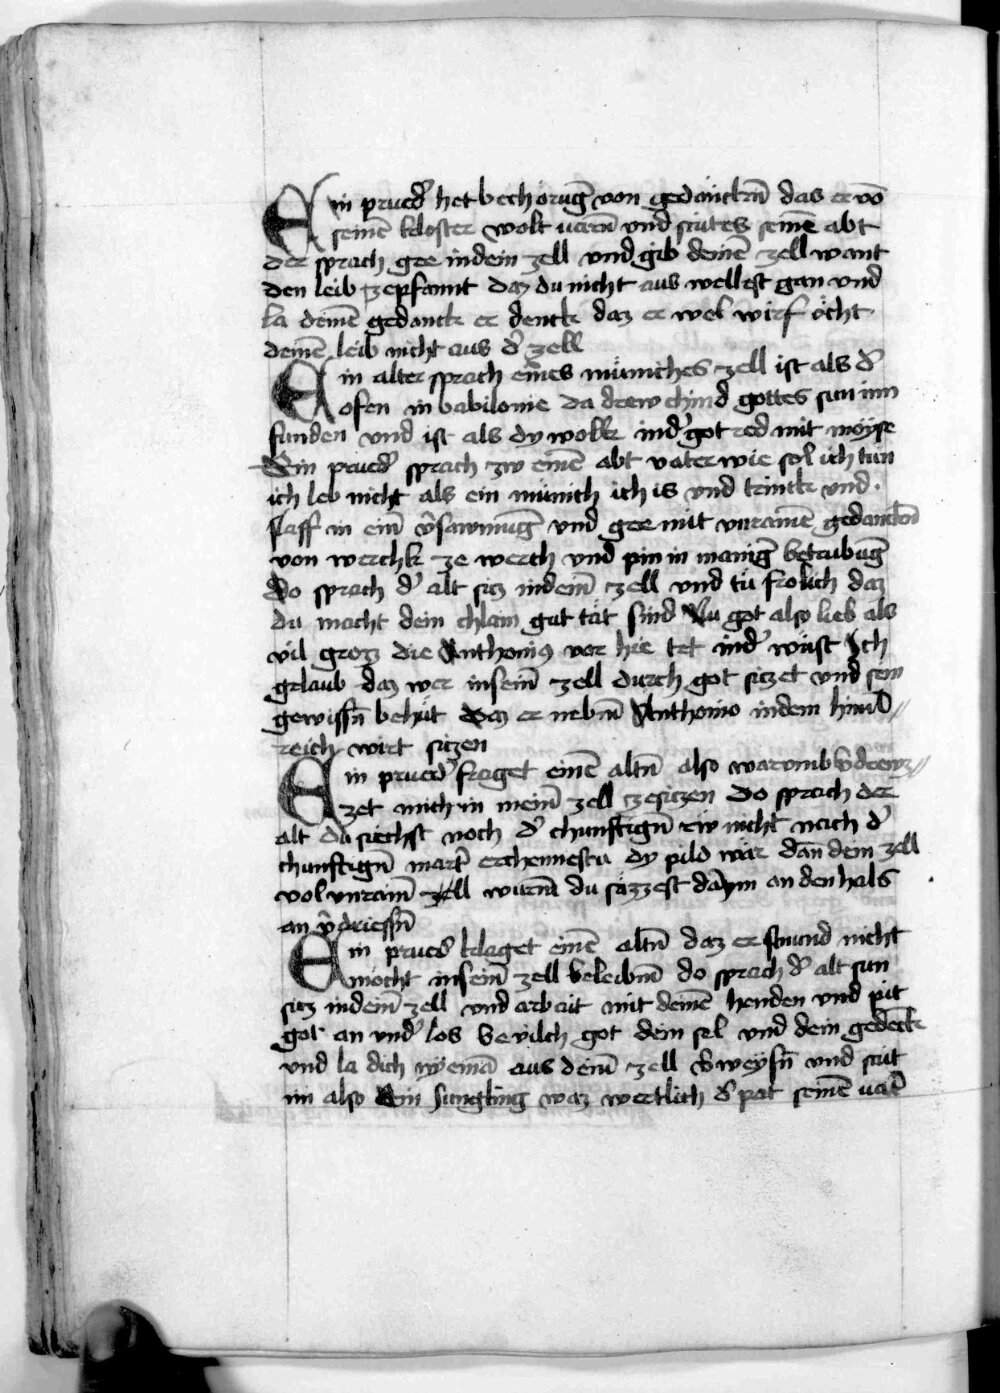 Ein prued᷑ het bechorug̅ von gedänckn̅ das er vo̅
seine̅ kloster wolt uarn̅ vnd sautes seine̅ abt
der sprach gee in dein zell vnd gib deine̅ zell want
den leib ze pfannt daz du nicht aus wellest gan vnd
la deine̅ gedanck er denck daz er wel wirf ocht
deine̅ leib nicht aus d᷑ zell
Ein alter sprach eines münches zell ist als d᷑
ofen in babilonie da drew chind gottes sun inn
funden vnd ist als dy wolk in d᷑ got red mit moyse
Ein prued᷑ sprach zw eine̅ abt vater wie sol ich tün
ich leb nicht als ein münich ich is vnd trinck vnd
slaff in ein̅ v᷑sawmug̅ vnd gee mit vnraine̅ gedanckn̅
von werchk ze werch vnd pin in manig᷑ betrubug̅
Do sprach d᷑ alt siz in dein̅ zell vnd tü frolich daz
du macht dein chlain gut tät sind Nu got also lieb als
vil groz die Anthoni9 vor hie tet in d᷑ wüst Ich
gelaub daz wer in sein̅ zell durch got sitzet vnd sein
gewissn̅ behüt daz er nebn̅ Anthonio in dem himl
reich wirt sitzen
Ein prued᷑ fraget eine̅ altn̅ also warumb v᷑drew
zet mich in mein̅ zell ze sitzen Do sprach der
alt du siechst noch d᷑ chunftign̅ rw nicht nach d᷑
chunftign̅ mart᷑ erchennestu dy pild wär dan̅ dein zell
vol vnrain̅ würm du säzzest dar̅in an den hals
an v᷑driessn̅
Ein prued᷑ klaget eine̅ altn̅ daz er stuund nicht
mocht in sein̅ zell beleibn̅ do sprach d᷑ alt sun
siz in dein̅ zell vnd arbait mit deine̅ henden vnd pit
got an vnd᷑ los bevilch got dein sel vnd dein gedeck
vnd la dich nyema̅ aus dein̅ zell v᷑weysn̅ vnd sait
im also Ein Jungling waz wertlich d᷑ pat seine̅ uat᷑